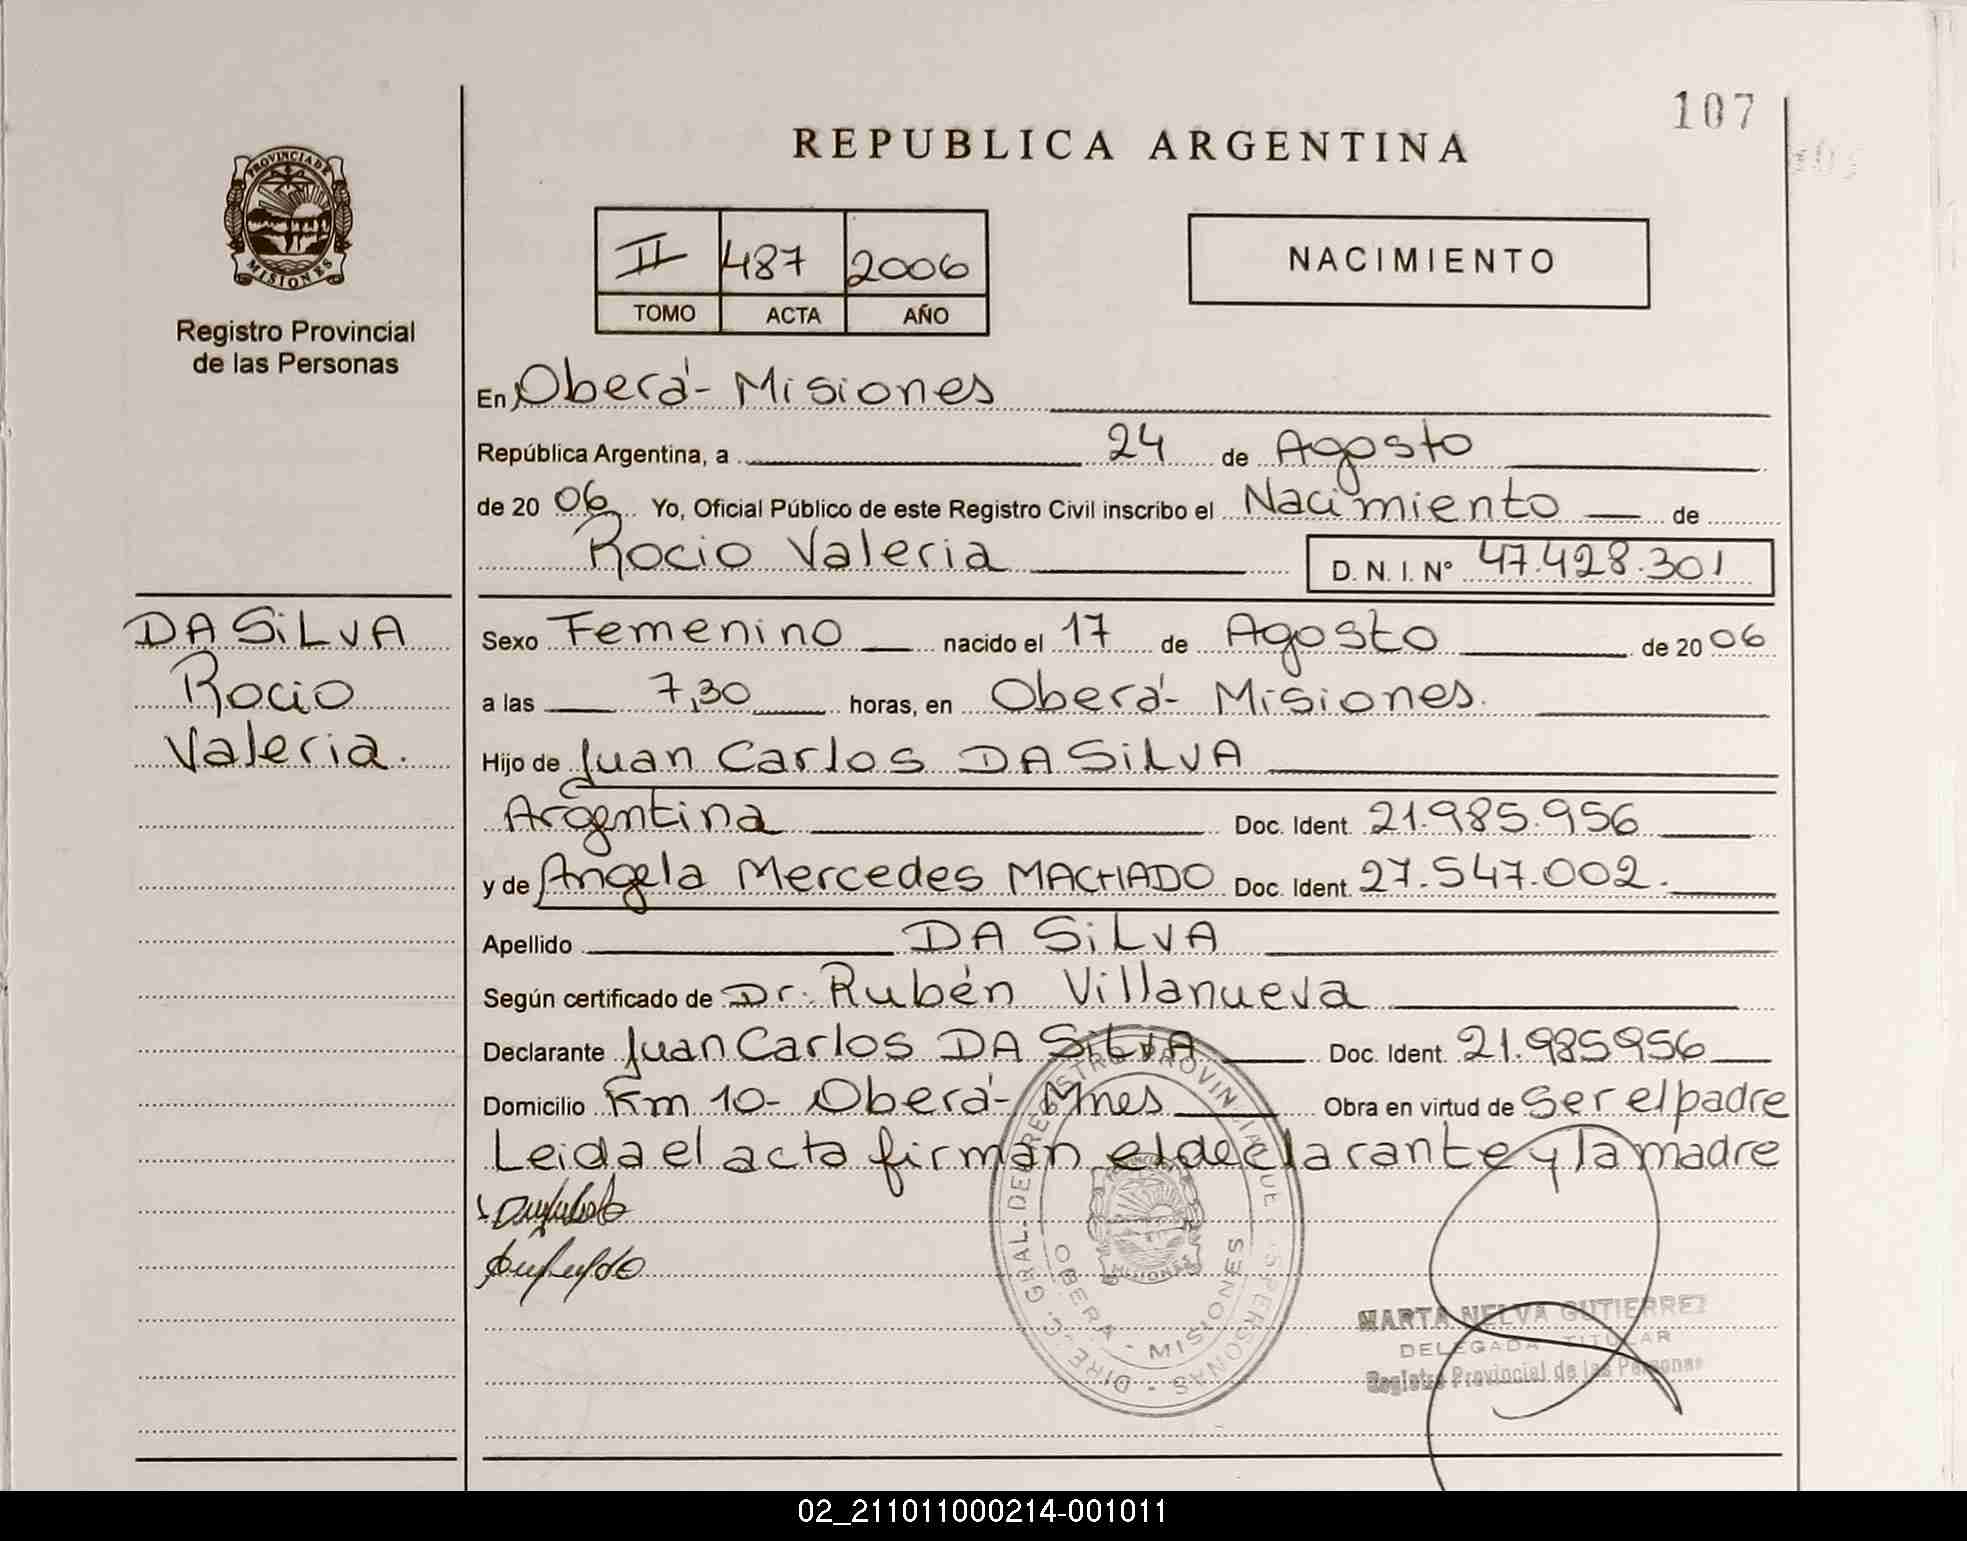 107
REPUBLICA ARGENTINA
PROVINCIA DE
MISIONES
Registro Provincial
de las Personas
II 487 2006
TOMO ACTA AÑO
NACIMIENTO
En Oberá - Misiones
República Argentina, a 24 de Agosto
de 20 06 Yo, Oficial Público de este Registro Civil inscribo el Nacimiento de
Rocio Valeria D. N. I. Nº 47.428.301
DA SiLVA
Rocio
Valeria.
Sexo Femenino nacido el 17 de Agosto de 20 06
a las 7,30 horas, en Oberá - Misiones.
Hijo de Juan Carlos DA SiLVA
Argentina Doc. Ident. 21.985.956
y de Angela Mercedes MACHADO Doc. Ident. 27.547.002.
Apellido DA SiLVA
Según certificado de Dr. Rubén Villanueva
Declarante Juan Carlos DA SiLVA Doc. Ident. 21.985956
Domicilio Km 10 - Oberá - Mnes Obra en virtud de Ser el padre
Leida el acta firman el declarante y la madre
OBERA - MISIONES
MISIONES
MARTA NELVA GUTIERREZ
DELEGADA TITULAR
Registro Provincial de las Personas
02_211011000214-001011